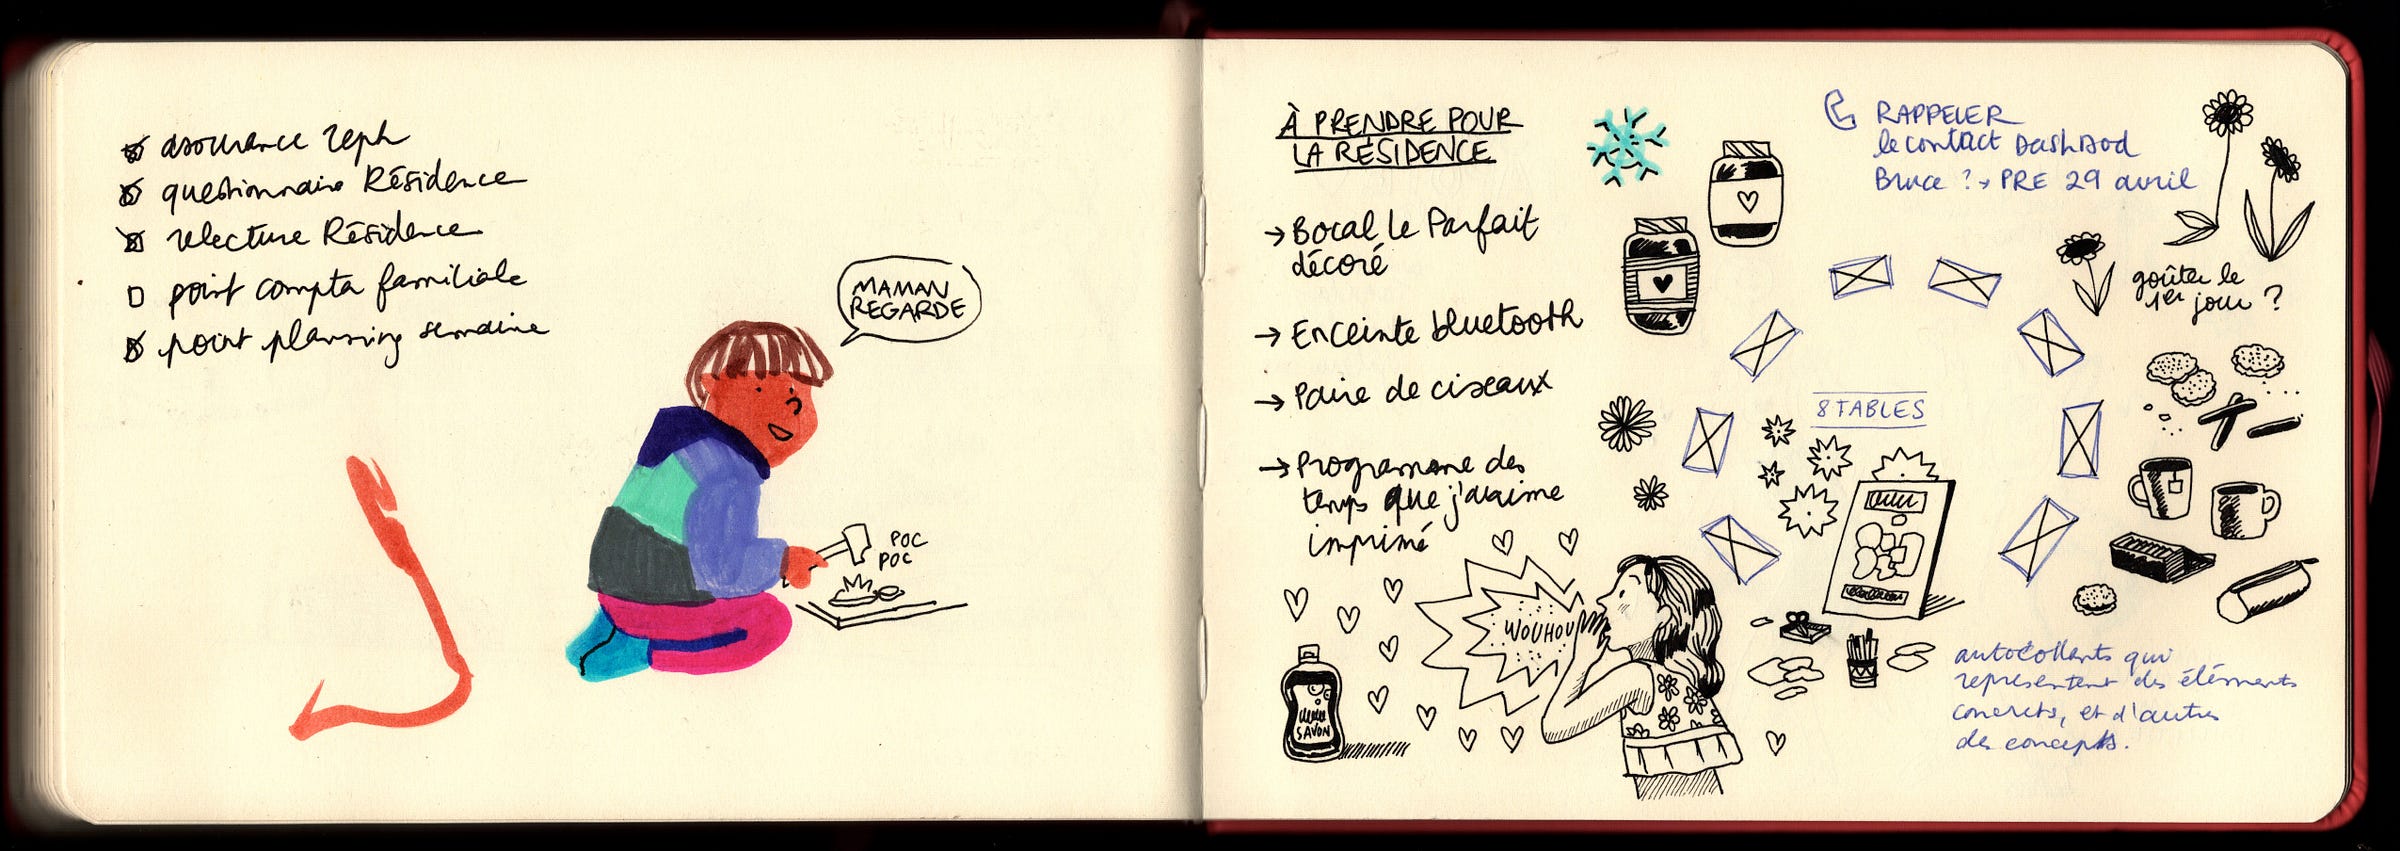 assurance zeph
questionnaire Résidence
relecture Résidence
point compta familiale
point planning semaine
MAMAN
REGARDE
POC
POC
À PRENDRE POUR
LA RÉSIDENCE
→ Bocal Le Parfait
décoré
→ Enceinte bluetooth
→ Paire de ciseaux
→ Programme des
temps que j'aurai
imprimé
WOUHOU
SAVON
RAPPELER
le contact DashDod
Bruce ? → PRE 29 avril
goûter le
1er jour ?
8 TABLES
autocollants qui
représentent des éléments
concrets, et d'autres
des concepts.